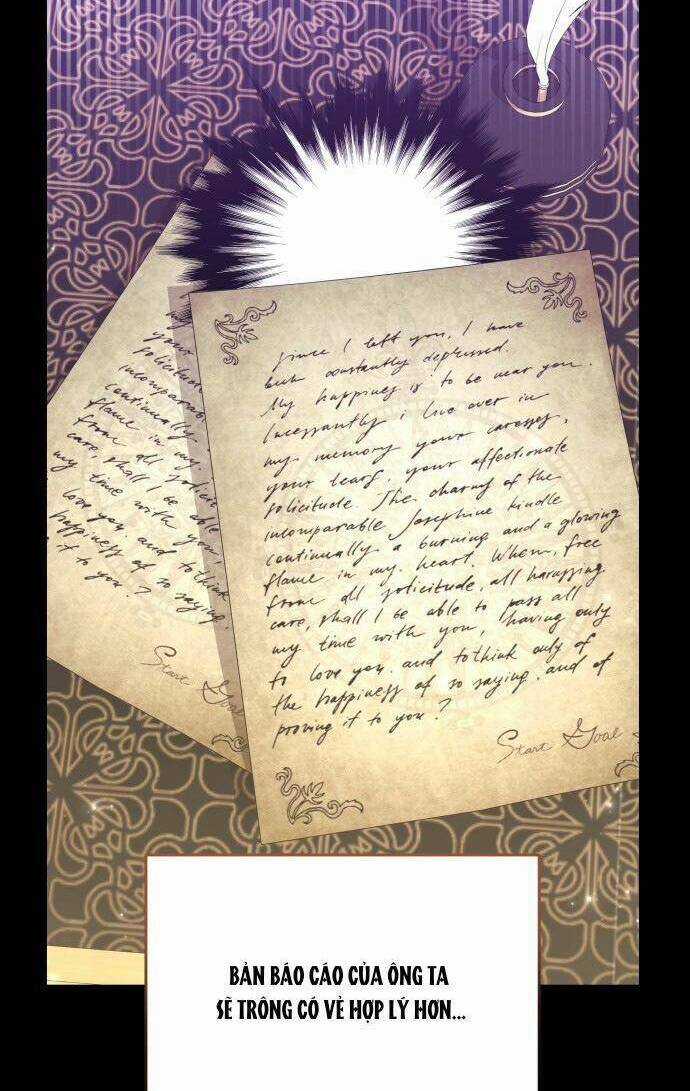 your
solicitude
incomparable
continually
flame in my
from all solicit
care, shall I be able
my time with you,
love you. and to think
happiness of so saying,
it to you?
Start Goal
Since I left you, I have
been constantly depressed.
My happines is to be near you.
Incessantly i live over in
my memory your caresses,
your tears, your affectionate
solicitude. The charms of the
incomparable Josephine kindle
continually a burning and a glowing
flame in my heart. When, free
from all solicitude, all harassing
care, shall I be able to pass all
my time with you, having only
to love you. and to think only of
the happiness of so saying. and of
proving it to you?
Start Goal
BẢN BÁO CÁO CỦA ÔNG TA
SẼ TRÔNG CÓ VẺ HỢP LÝ HƠN...